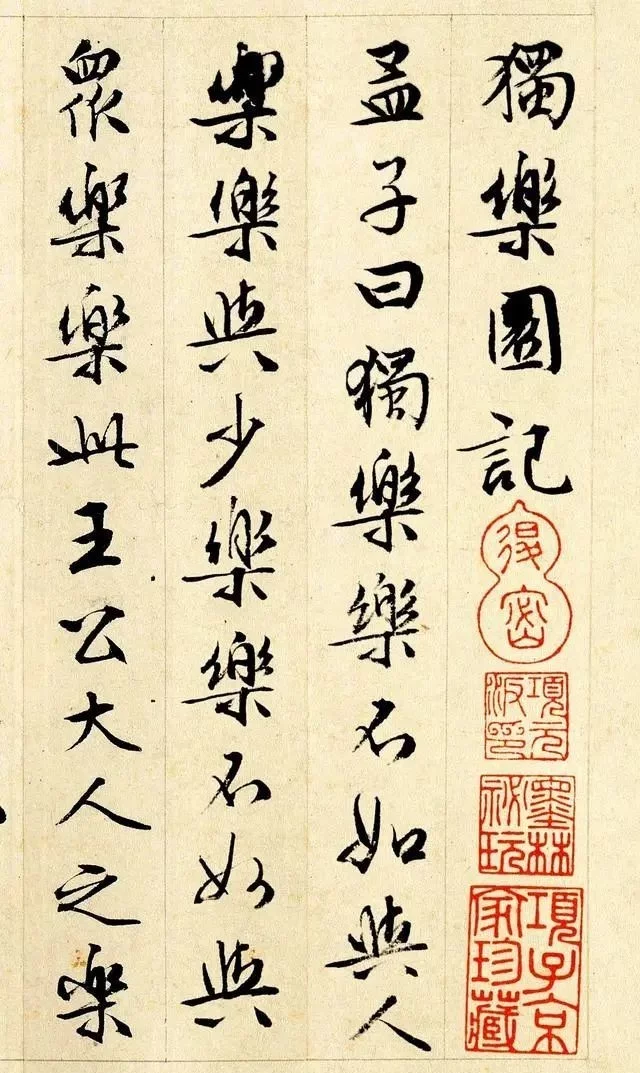 獨樂園記
退密
項元汴印
墨林祕玩
項子京家珍藏
孟子曰獨樂樂不如與人
樂樂與少樂樂不如與
衆樂樂此王公大人之樂